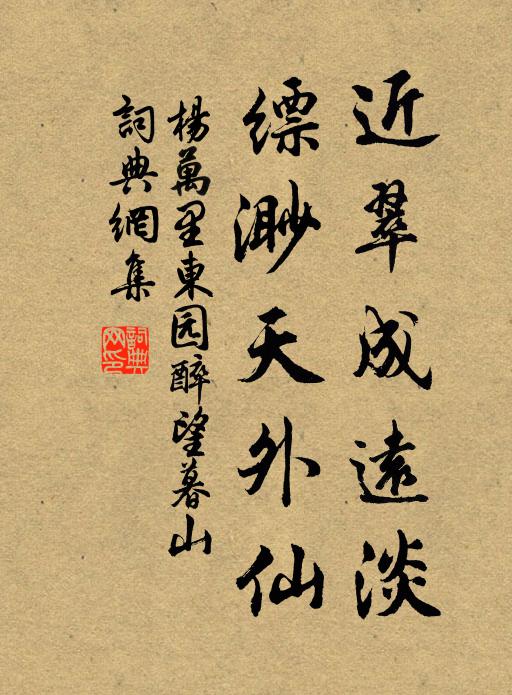 近翠成遠淡
缥渺天外仙
楊萬里東园醉望暮山
詞典網集
詞典
网印